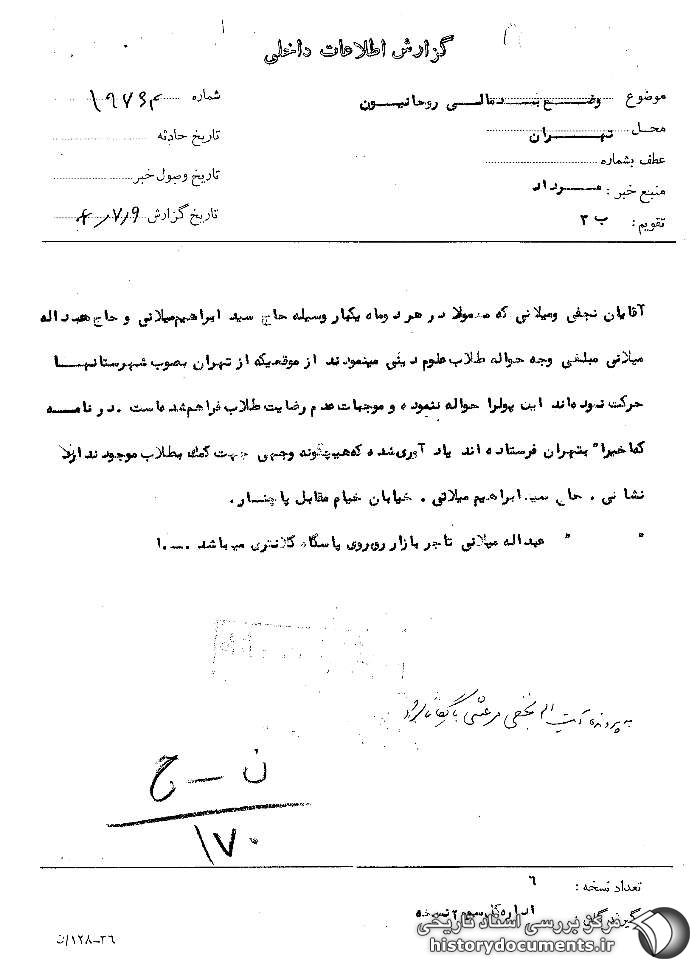 گزارش اطلاعات داخلی
موضوع وضع بد مالی روحانیون
شماره
محل تهران
تاریخ حادثه
عطف بشماره
تاریخ وصول خبر
منبع خبر : مرداد
تاریخ گزارش
تقویم : ب ۳
آقایان نجفی و میلانی که معمولا در هر دو ماه یکبار وسیله حاج سید ابراهیم میلانی و حاج عبداله
میلانی مبلغی وجه حواله طلاب علوم دینی مینمودند از موقعیکه از تهران بصوب شهرستانها
حرکت نموده‌اند این پولرا حواله ننموده و موجبات عدم رضایت طلاب فراهم شده است . در نامه
که اخیرا" بتهران فرستاده اند یاد آوری شده که هیچگونه وجهی جهت کمک بطلاب موجود ندارند
نشانی . حاج سید ابراهیم میلانی . خیابان خیام مقابل پاچنار .
" " عبداله میلانی تاجر بازار روبروی پاسگاه کلانتری میباشد .
به پرونده آیت اله نجفی مرعشی
ن - ح
۱۷۰
تعداد نسخه : ۶
گیرندگان : اداره کل سوم ۲ نسخه
۱۲۸-۳۶/ن
مرکز بررسی اسناد تاریخی
historydocuments.ir